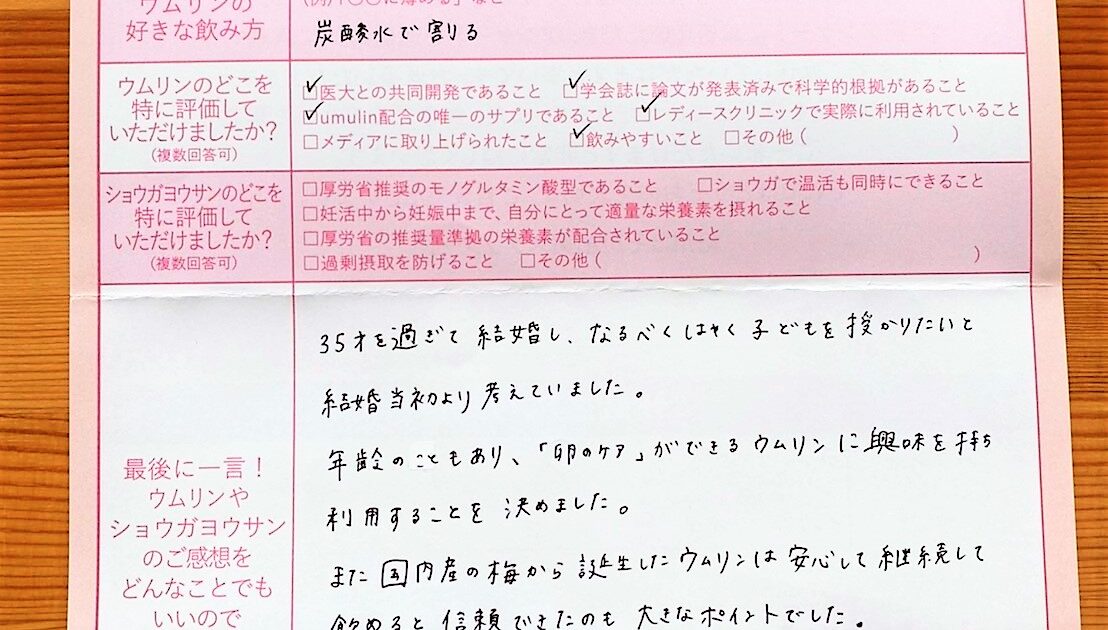 ウムリンの
好きな飲み方
炭酸水で割る
ウムリンのどこを
特に評価して
いただけましたか?
(複数回答可)
□医大との共同開発であること □学会誌に論文が発表済みで科学的根拠があること
□umulin配合の唯一のサプリであること □レディースクリニックで実際に利用されていること
□メディアに取り上げられたこと □飲みやすいこと □その他( )
ショウガヨウサンのどこを
特に評価して
いただけましたか?
(複数回答可)
□厚労省推奨のモノグルタミン酸型であること □ショウガで温活も同時にできること
□妊活中から妊娠中まで、自分にとって適量な栄養素を摂れること
□厚労省の推奨量準拠の栄養素が配合されていること
□過剰摂取を防げること □その他( )
最後に一言!
ウムリンや
ショウガヨウサン
のご感想を
どんなことでも
いいので
35才を過ぎて結婚し、なるべくはやく子どもを授かりたいと
結婚当初より考えていました。
年齢のこともあり、「卵のケア」ができるウムリンに興味を持ち
利用することを決めました。
また国内産の梅から誕生したウムリンは安心して継続して
飲めると信頼できたのも大きなポイントでした。